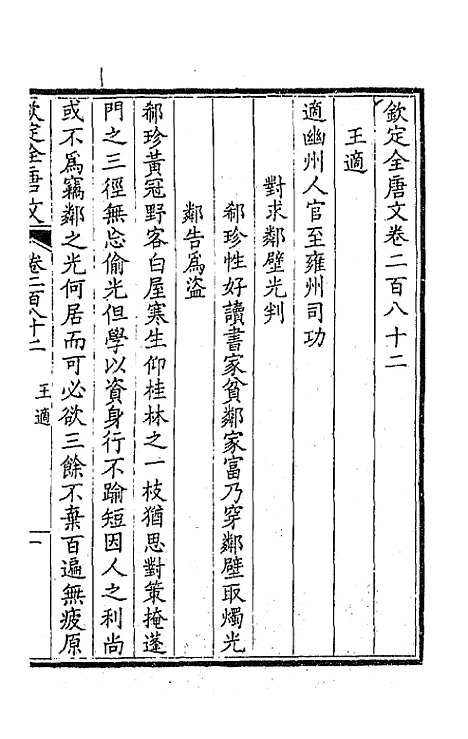 欽定全唐文卷二百八十二
王適
適幽州人官至雍州司功
對求鄰壁光判
郗珍性好讀書家貧鄰家富乃穿鄰壁取燭光
鄰告為盜
郗珍黃冠野客白屋寒生仰桂林之一枝猶思對策掩蓬
門之三徑無忘偷光但學以資身行不踰短因人之利尚
或不爲竊鄰之光何居而可必欲三餘不棄百遍無疲原
欽定全唐文 卷二百八十二 王適 一